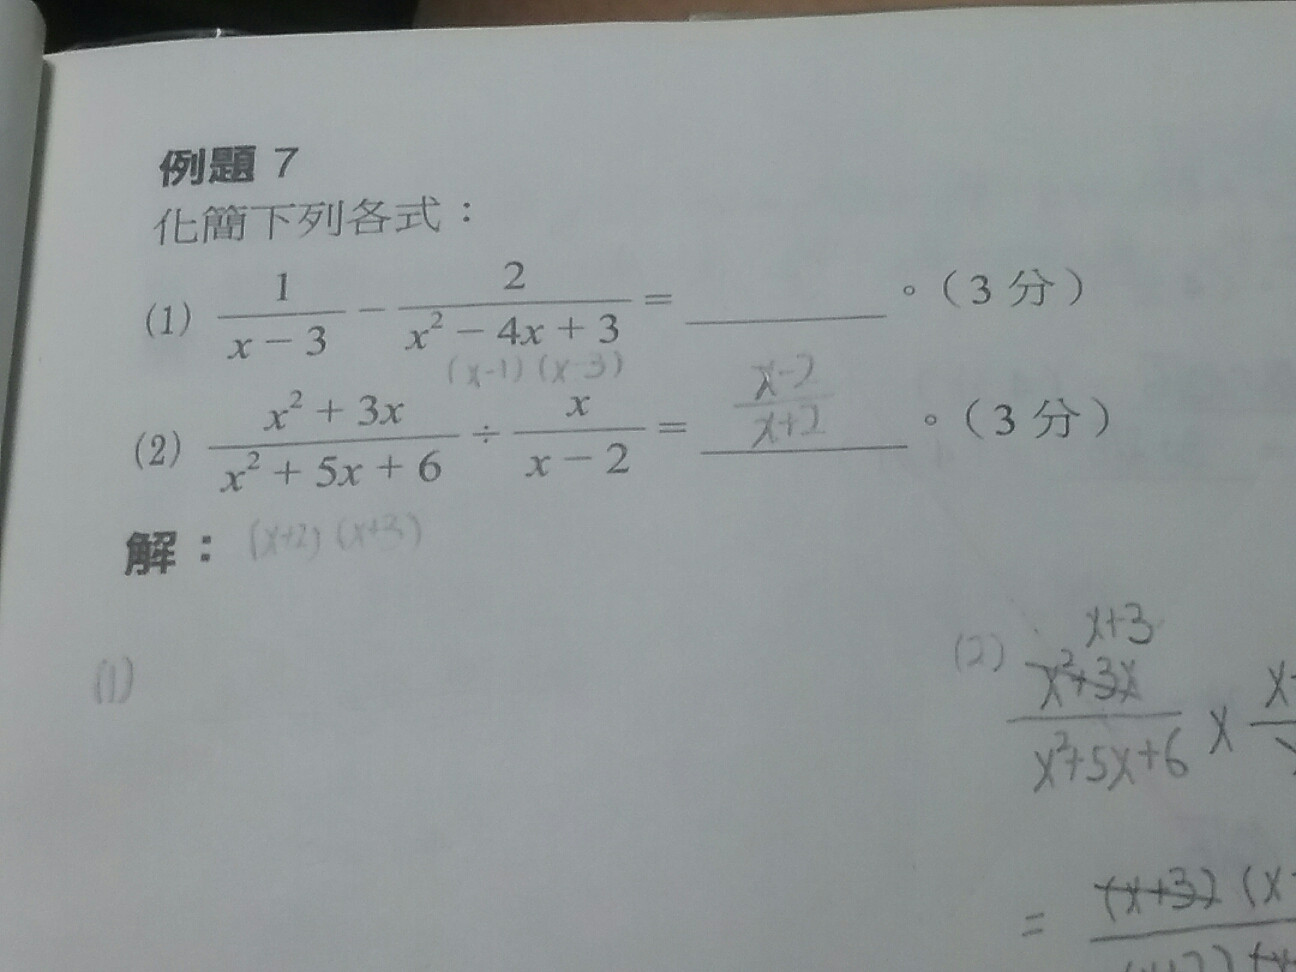 例題 7
化簡下列各式：
(1) \frac{1}{x-3} - \frac{2}{x^2-4x+3} = ______。（3 分）
(x-1)(x-3)
(2) \frac{x^2+3x}{x^2+5x+6} ÷ \frac{x}{x-2} = \frac{x-2}{x+2}。（3 分）
解：(x+2)(x+3)
(1)
(2) x+3
\frac{x^2+3x}{x^2+5x+6} ×
= (x+3)